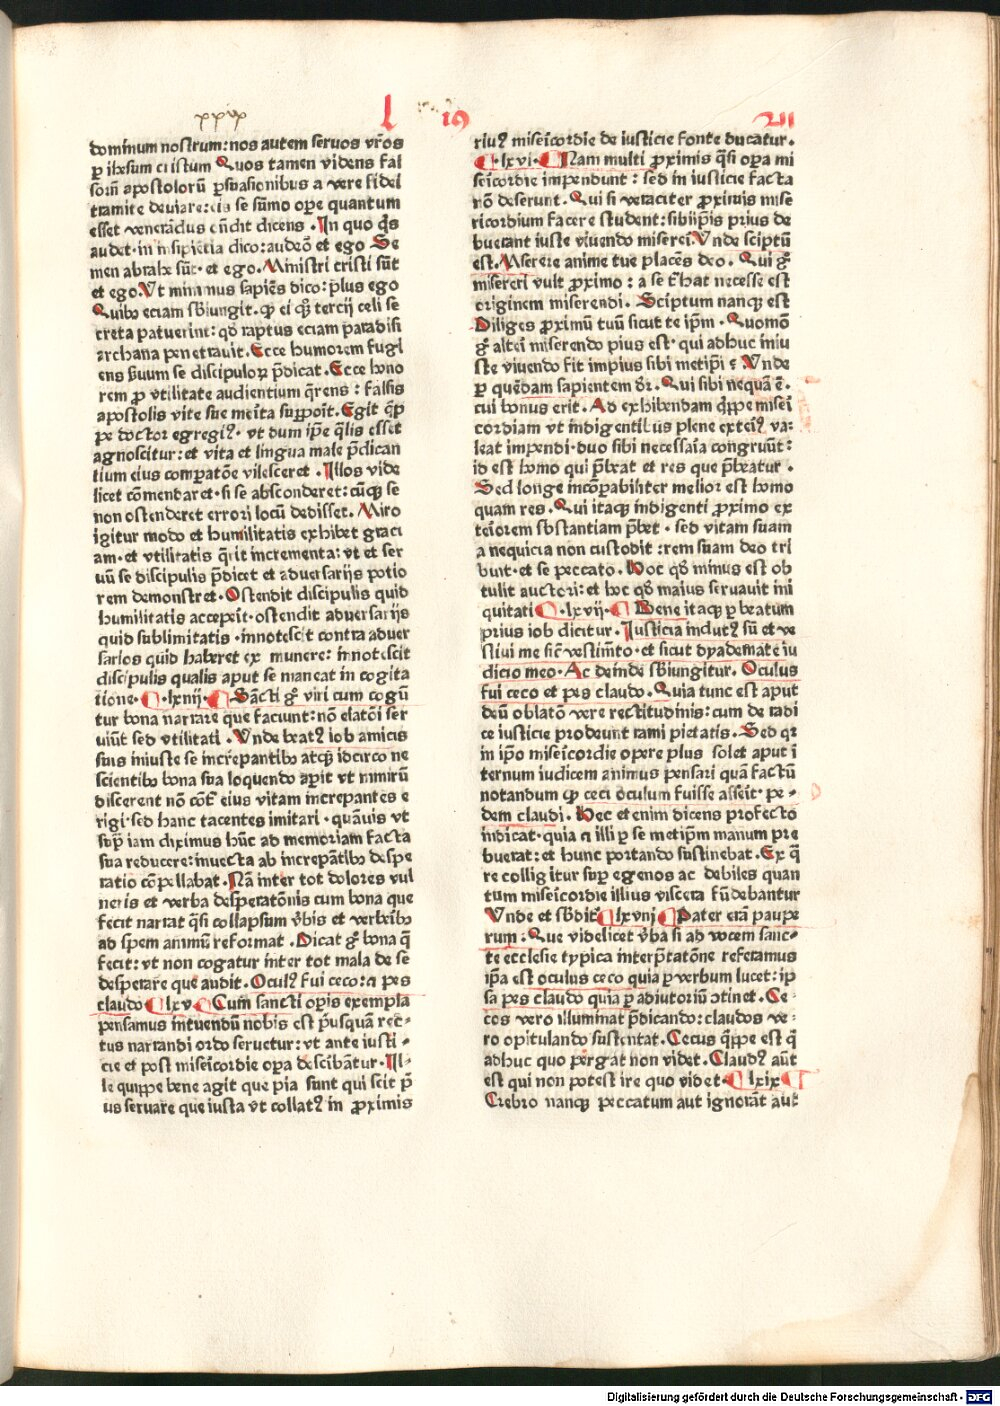 xxix
l 19 VII
dominum nostrum: nos autem seruos vr̃os
ꝑ ihesum cristum Quos tamen videns fal
sorũ apostolorũ ꝑsuasionibus a vere fidei
tramite deuiare: eis se sũmo oꝑe quantum
esset venerãdus oñdit dicens . In quo q̃s
audet · in insipiẽtia dico: audeo᷑ et ego Se
men abrahe sũt · et ego . Ministri cristi sũt
et ego . Vt minimus sapiẽs dico: plus ego
Quibꝰ eciam sb̃iungit . ꝙ ei cꝙ̃ tercij celi se
creta patuerint: qđ raptus eciam paradisi
archana penetrauit . Ecce humorem fugi
ens ẜuum se discipuloꝝ p̃dicat . Ecce hono
rem ꝓ vtilitate audientium q̃rens : falsis
apostolis vite sue merita suppõit . Egit q̃ꝑ
pe doctor egregiꝰ . vt dum ip̃e q̃lis esset
agnoscitur: et vita et lingua male p̃dican
tium eius comꝑatõe vilesceret . Illos vide
licet cõmendaret · si se absconderet: cũcꝙ se
non ostenderet errori locũ dedisset . Miro
igitur modo et humilitatis exhibet graci
am · et vtilitatis q̃rit incrementa: vt et ser
uũ se discipulis p̃dicet et aduersarijs potio
rem demonstret . Ostendit discipulis quid
humilitatis acceperit · ostendit aduersarijs
quid sublimitatis · innotescit contra aduer
sarios quid haberet ex munere: innotescit
discipulis qualis aput se maneat in cogita
tione · ¶ · lxiiij · ¶ Sãcti g̃ viri cum cogũ
tur bona narrare que faciunt: nõ elatõi ser
uiũt sed vtilitati . Vnde beatꝰ iob amicis
suis iniuste se increpantibꝰ atqꝫ idcirco ne
scientibꝰ bona sua loquendo aꝑit vt nimirũ
discerent nõ cõt̃ eius vitam increpantes e
rigi · sed hanc tacentes imitari · quãuis vt
suꝑ iam diximus hũc ad memoriam facta
sua reducere: inuecta ab increpãtibꝰ despe
ratio cõpellabat . Nã inter tot dolores vul
neris et verba desꝑatõnis cum bona que
fecit narrat q̃si collapsum v̾bis et verberibꝰ
ad spem animũ reformat . Dicat g̃ bona q̃
fecit: vt non cogatur inter tot mala de se
desperare que audit . Oculꝰ fui ceco: a pes
claudo ¶ lxv ¶ Cum sancti oꝑis exempla
pensamus intuendũ nobis est p̃usquã rec⸗
tus narrandi ordo seruetur: vt ante iusti ⸗
cie et post misericordie oꝑa describãtur . Il⸗
le quippe bene agit que pia sunt qui scit p̃
us seruare que iusta vt collatꝰ in ꝓximis
riuꝰ misericordie de iusticie fonte ducatur .
¶ · lxvi · ¶ Nam multi ꝓximis q̃si oꝑa mi
sericordie impendunt : sed in iusticie facta
nõ deserunt . Qui si veraciter ꝓximis mise
ricordium facere student: sibiip̃is prius de
buerant iuste viuendo misereri . Vnde sciptũ
est . Miserere anime tue placẽs deo . Qui g̃
misereri vult ꝓximo : a se t̃hat necesse est
originem miserendi . Sciptum nanqꝫ est
Diliges ꝓximũ tuũ sicut te ip̃m . Quomõ
g̃ alteri miserendo pius est · qui adhuc iniu
ste viuendo fit impius sibi metip̃i : Vnde
ꝑ quẽdam sapientem d̾r . Qui sibi nequã ẽ .
cui bonus erit . Ad exhibendam q̃ppe miseri
cordiam vt indigentibus plene exteriꝰ va⸗
leat impendi · duo sibi necessaria congruũt:
id est homo qui p̃beat et res que p̃beatur .
Sed longe incõꝑabiliter melior est homo
quam res . Qui itaqꝫ indigenti ꝓximo ex
teriorem sb̃stantiam p̃bet · sed vitam suam
a nequicia non custodit : rem suam deo tri
buit · et se peccato . Hoc qđ minus est ob
tulit auctori: et hoc qđ maius seruauit ini
quitati ¶ . lxvij · ¶ Bene itaqꝫ ꝑ beatum
prius iob dicitur . Iusticia indutꝰ sũ et ve
stiui me sic̃ vestim̃to · et sicut dyademate iu
dicio meo · Ac deinde sb̃iungitur . Oculus
fui ceco et pes claudo . Quia tunc est aput
deũ oblatõ vere rectitudinis: cum de radi
ce iusticie prodeunt rami pietatis . Sed qꝛ
in ip̃o misericordie opere plus solet aput ĩ
ternum iudicem animus pensari quã factũ
notandum ꝙ ceci oculum fuisse asserit · pe ⸗
dem claudi . Hec et enim dicens profecto
indicat · quia a illi ꝑ se metip̃m manum pre
buerat: et hunc portando sustinebat . Ex q̃
re colligitur suꝑ egenos ac debiles quan
tum misericordie illius viscera fũdebantur
Vnde et sb̃dit² ¶ lxviij ¶ Pater erã paupe
rum : Que videlicet v̾ba si ad vocem sanc⸗
te ecclesie typica interp̃tatõne referamus
ip̃a est oculus ceco quia ꝑ verbum lucet: ip
sa pes claudo quia ꝑ adiutoriũ ↄtinet . Ce ⸗
cos vero illuminat p̃dicando: claudos ve ⸗
ro opitulando sustentat . Cecus q̃ppe est q̃
adhuc quo pergat non videt . Claudꝰ aũt
est qui non potest ire quo videt . ¶ lxix ¶
Crebro nancꝙ peccatum aut ignorãt aut
Digitalisierung gefördert durch die Deutsche Forschungsgemeinschaft - DFG